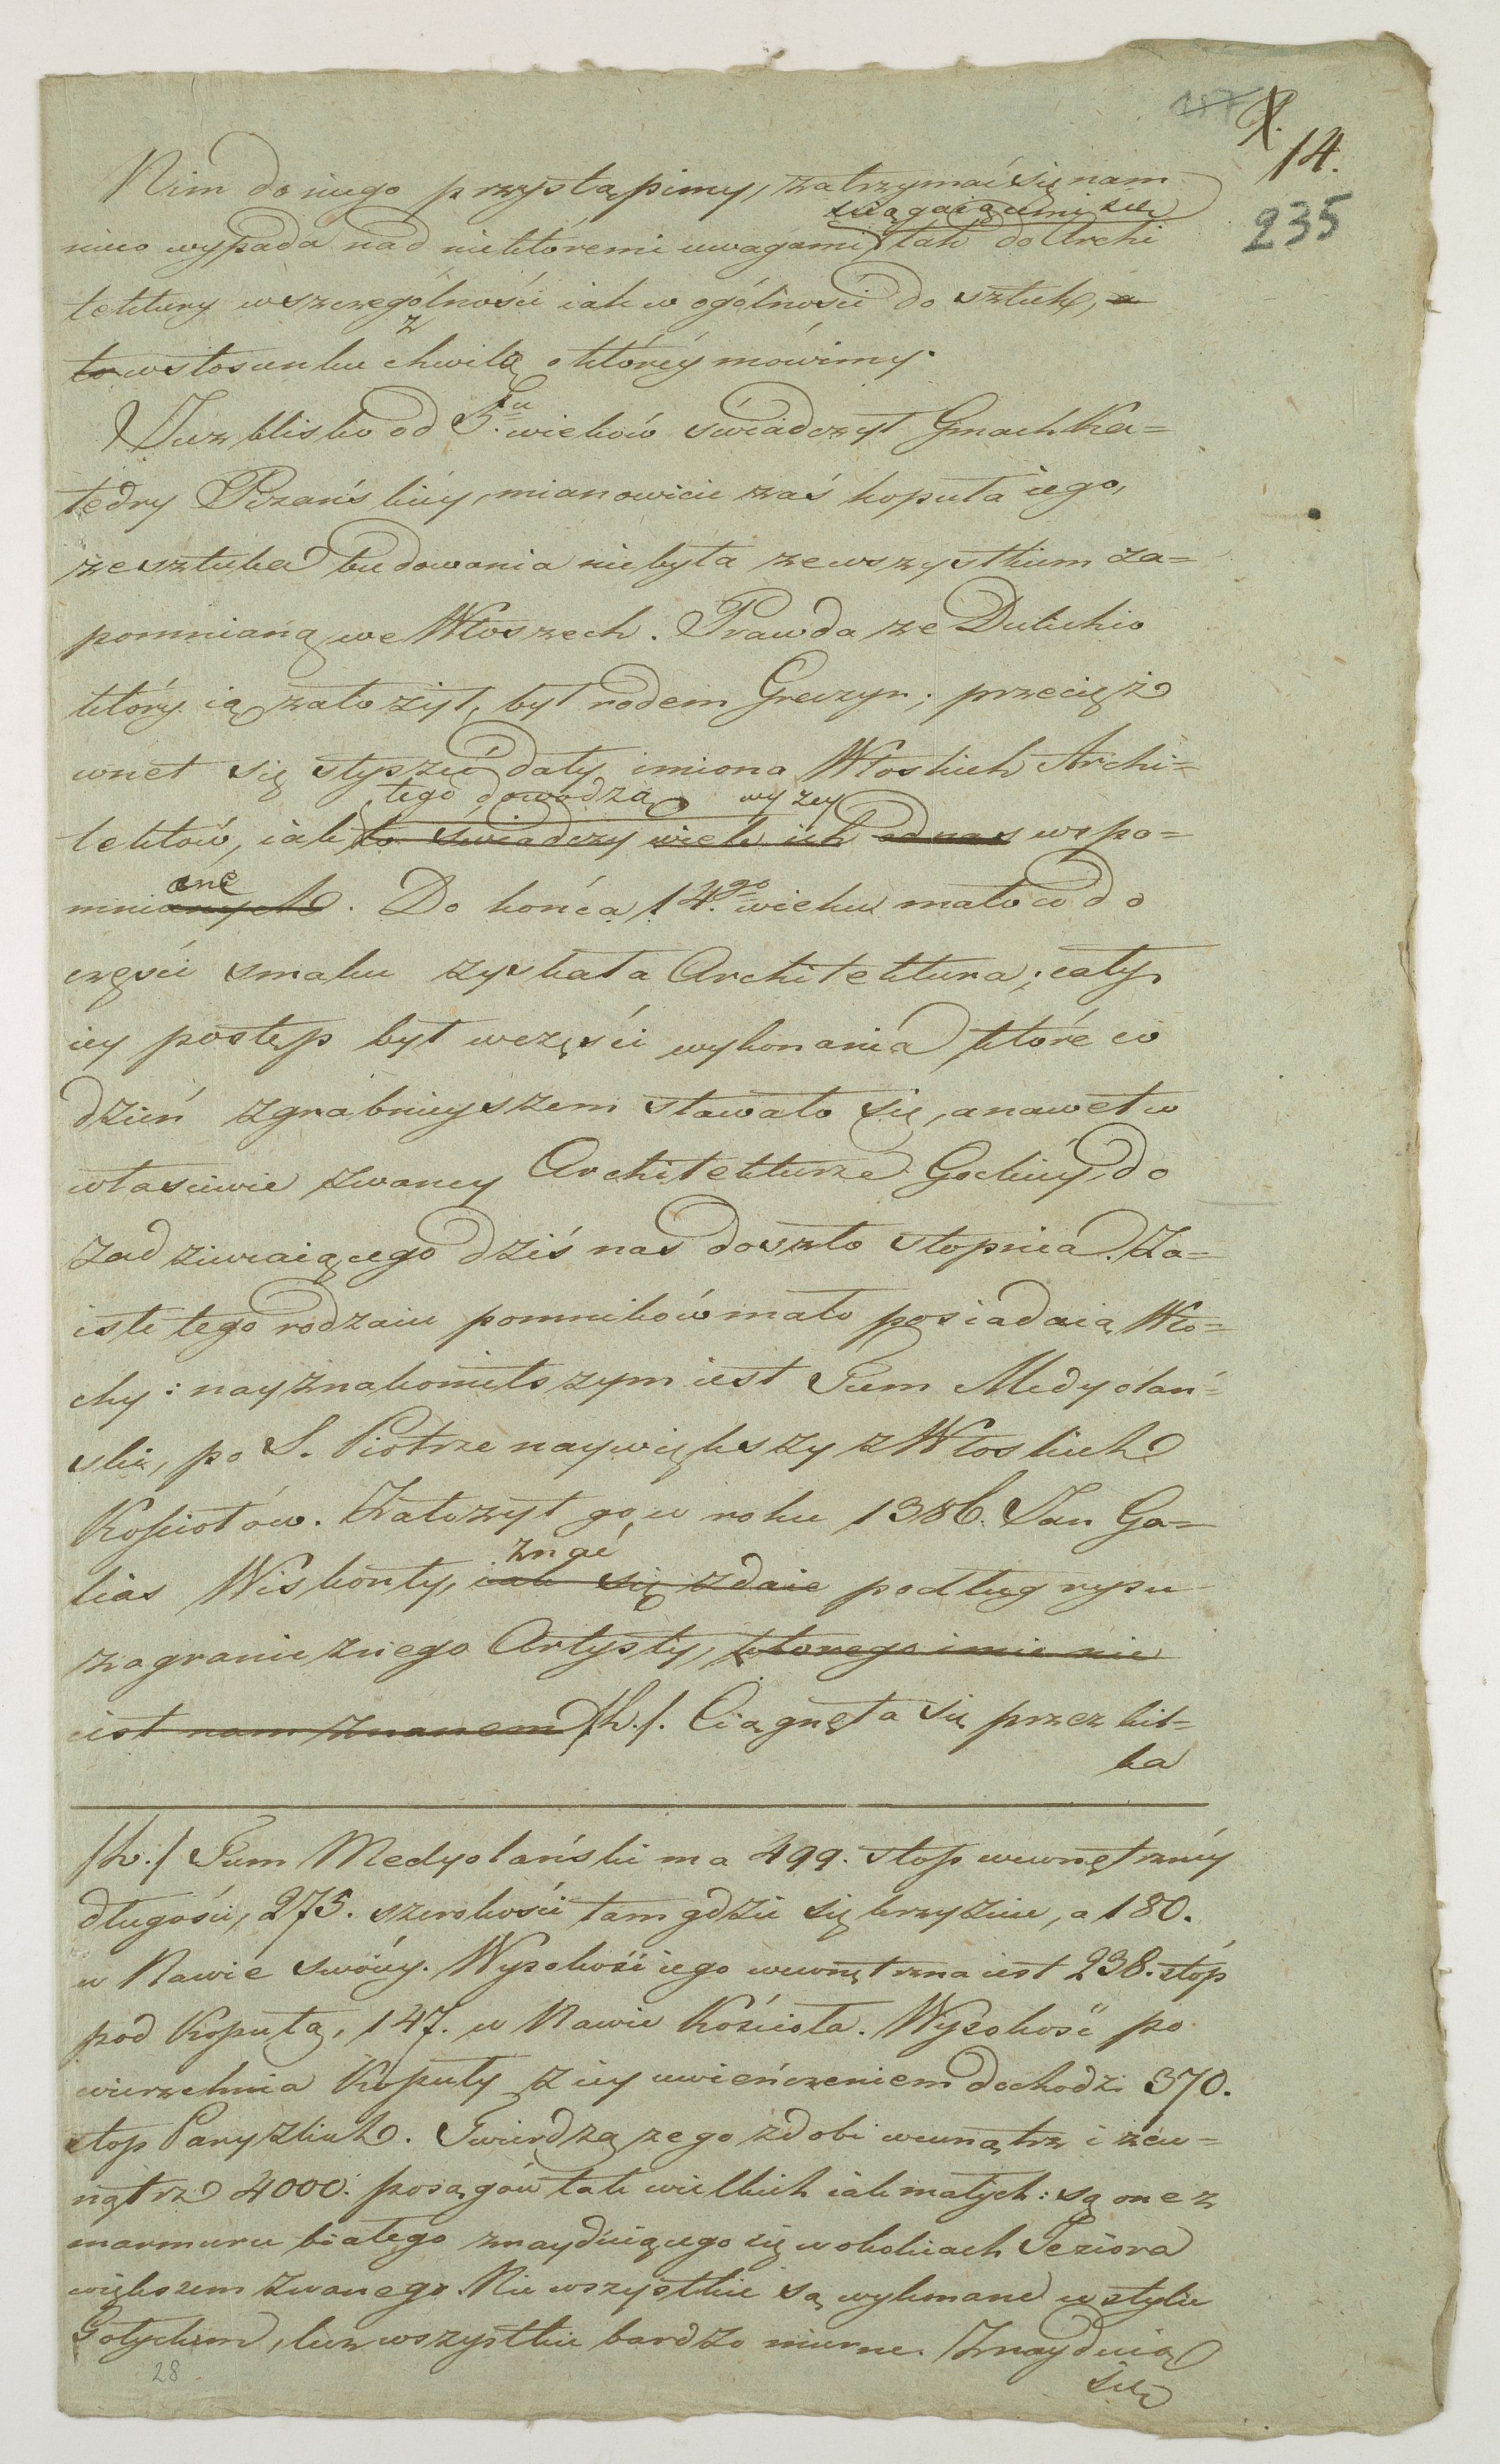 187 X.
14.
235
Nim do niego przystąpimy, zatrzymać się nam
sciągaiącemi się
nieco wypada nad niektóremi uwagami tak do Archi
tektury w szczególności iak w ogólności do sztuk, a
z
to w stosunku chwilą o któréy mówimy.
Już blisko od 5.ciu wieków świadczył Gmach Ka=
tedry Pizańskiey, mianowicie zaś kopuła iego,
że sztuka budowania niebyła zewszystkiem za=
pomnianą we Włoszech. Prawda że Dulichio
który ią założył, był rodem Greczyn; przecięż
wnet się słyszeć dały imiona Włoskich Archi=
tego dowodzą wyżey
tektów, iak to świadczy wiele ich od nas wspo=
one
mnianych. Do końca 14.go wieku mało co do
części smaku zyskała Architektura; cały
iey postęp był w części wykonania które co
dzień zgrabnieyszem stawało się, a nawet w
właściwie zwaney Architekturze Gockiéy do
zadziwiaiącego dziś nas doszło stopnia. Za=
iste tego rodzaiu pomników mało posiadaią Wło=
chy: nayznakomitszym iest Tum Medyolań=
ski, po S. Piotrze naywiększy z Włoskich
Kościołów. Założył go w roku 1386. Jan Ga=
znać
lias Wiskonty, iak się zdaie podług rysu
zagranicznego Artysty, którego imie nie
iest nam znanem /h./. Ciągnęła się przez kil=
ka
/h./ Tum Medyolański ma 499. stop wewnętrznéy
długości, 275. szerokości tam gdzie się krzyżuie, a 180.
w Nawie swóiéy. Wysokość iego wewnętrzna iest 238. stóp
pod Kopułą, 147. w Nawie Kościoła. Wysokość po
wierzchnia Kopuły z iey uwieńczeniem dochodzi 370.
stop Paryzkich. Twierdzą że go zdobi wewnątrz i zew=
nątrz 4000. posągów tak wielkich iak małych: są one z
marmuru białego znayduiącego się w okolicach Jeziora
większem zwanego. Nie wszystkie są wykonane w stylu
Gotyckim, lecz wszystkie bardzo mierne. Znayduią
się
28